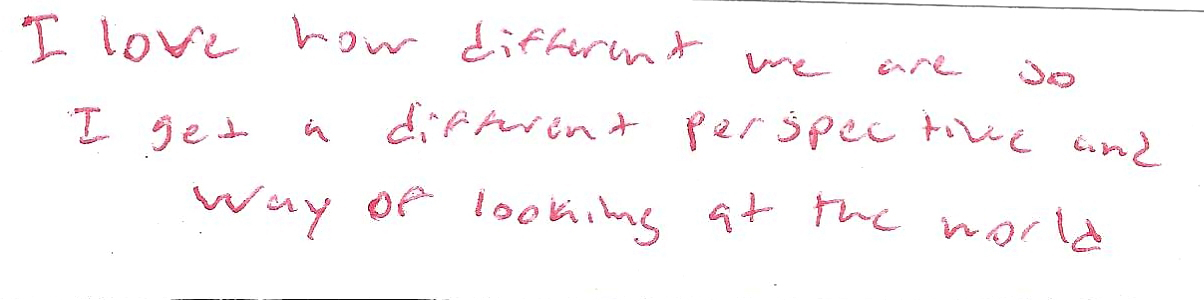 I love how different we are so
I get a different perspective and
way of looking at the world